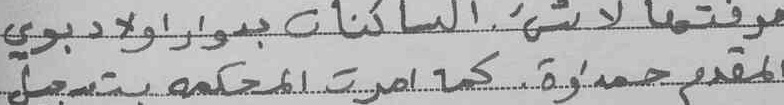 لا شيء. الساكنات بدوار اولاد بوي
المقدم حمداوة. كما امرت المحكمه بتسجيل